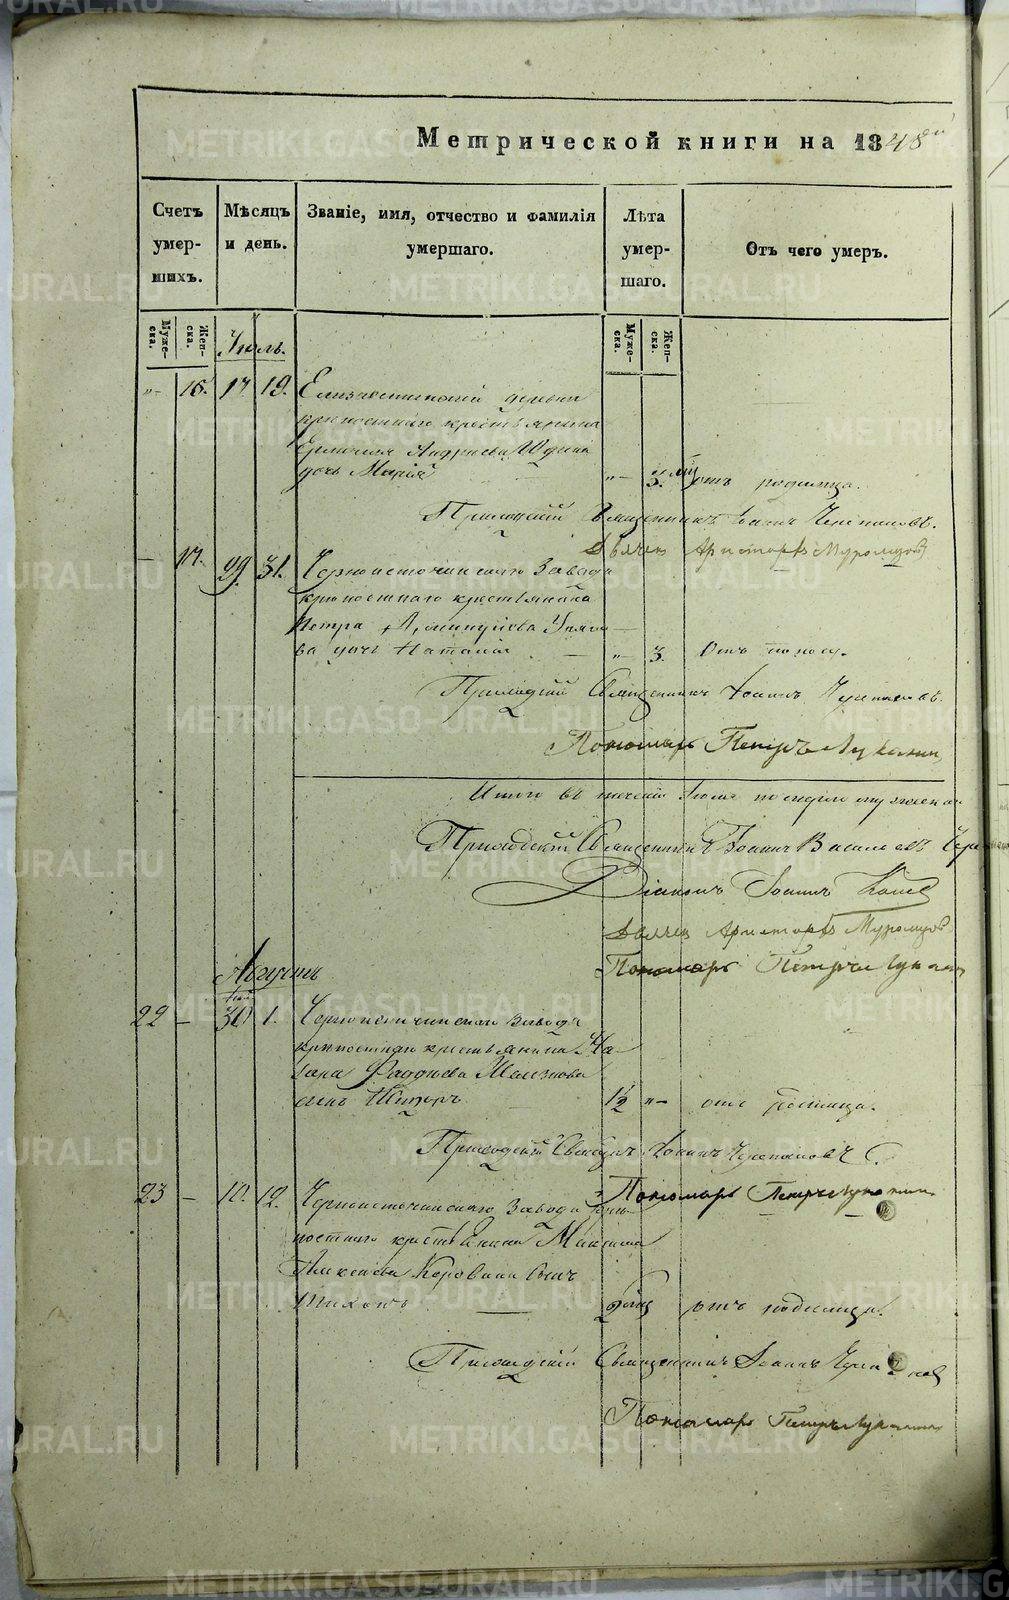 Метрической книги на 1848й
Счетъ умер-шихъ.
Мѣсяцъ и день.
Званіе, имя, отчество и фамилія умершаго.
Лѣта умер-шаго.
Отъ чего умеръ.
Муже-ска.
Жен-ска.
Муже-ска.
Жен-ска.
Іюль.
„ 16. 17 19. Елизаветинской деревни
крѣпостнаго крестьянина
Андреева Юдина
дочь Марія „ 3. отъ родимца.
Приходскій Священникъ Іоаннъ Черепановъ.
Дьячек Аристархъ Муромцов
— 17. 29 31. Черноисточинскаго Завода
крѣпостнаго крестьянина
Петра
ва дочь Наталія — „ 3. Отъ поноса.
Приходскій Священникъ Іоаннъ Черепановъ.
Пономарь Петръ Луканин
Итого въ теченіи Іюля
Приходскій Священникъ Іоаннъ Васильевъ Чере-
Діаконъ Іоаннъ
Дьячек Аристархъ Муромцов
Пономарь Петръ Луканин
Августъ
22 — 30 1. Черноисточинскаго Завода
крѣпостнаго крестьянина На-
зара Фаддеева
сынъ Петръ 1/2 „ отъ родимца.
Приходскій Священ Іоаннъ Черепановъ
23 — 10. 12. Черноисточинскаго Завода крѣ-
Пономарь Петръ Луканин
постнаго крестьянина Максима
Алексѣева Коровина сынъ
Тихонъ — отъ родимца.
Приходскій Священникъ Іоаннъ Черепанов
Пономарь Петръ Луканин
METRIKI.GASO-URAL.RU